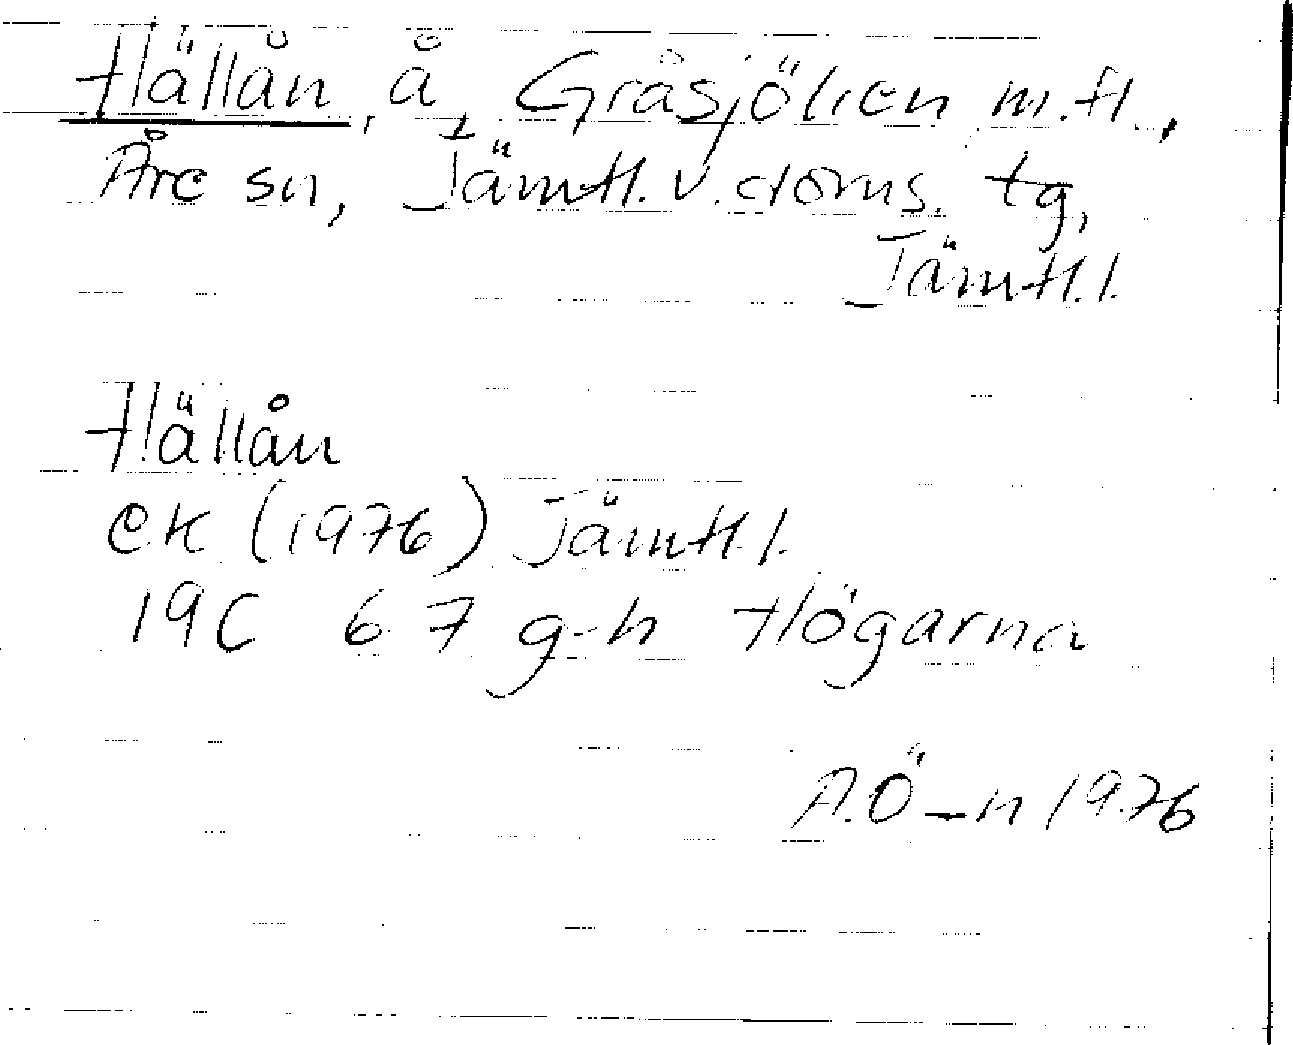 Hällån, å, Gråsjölien m.fl.,
Åre sn, Jämtl. v. doms. tg,
Jämtl. l.
Hällån
ek (1976) Jämtl. l.
19C 6 7 g-h Högarna
A.Ö-n 1976